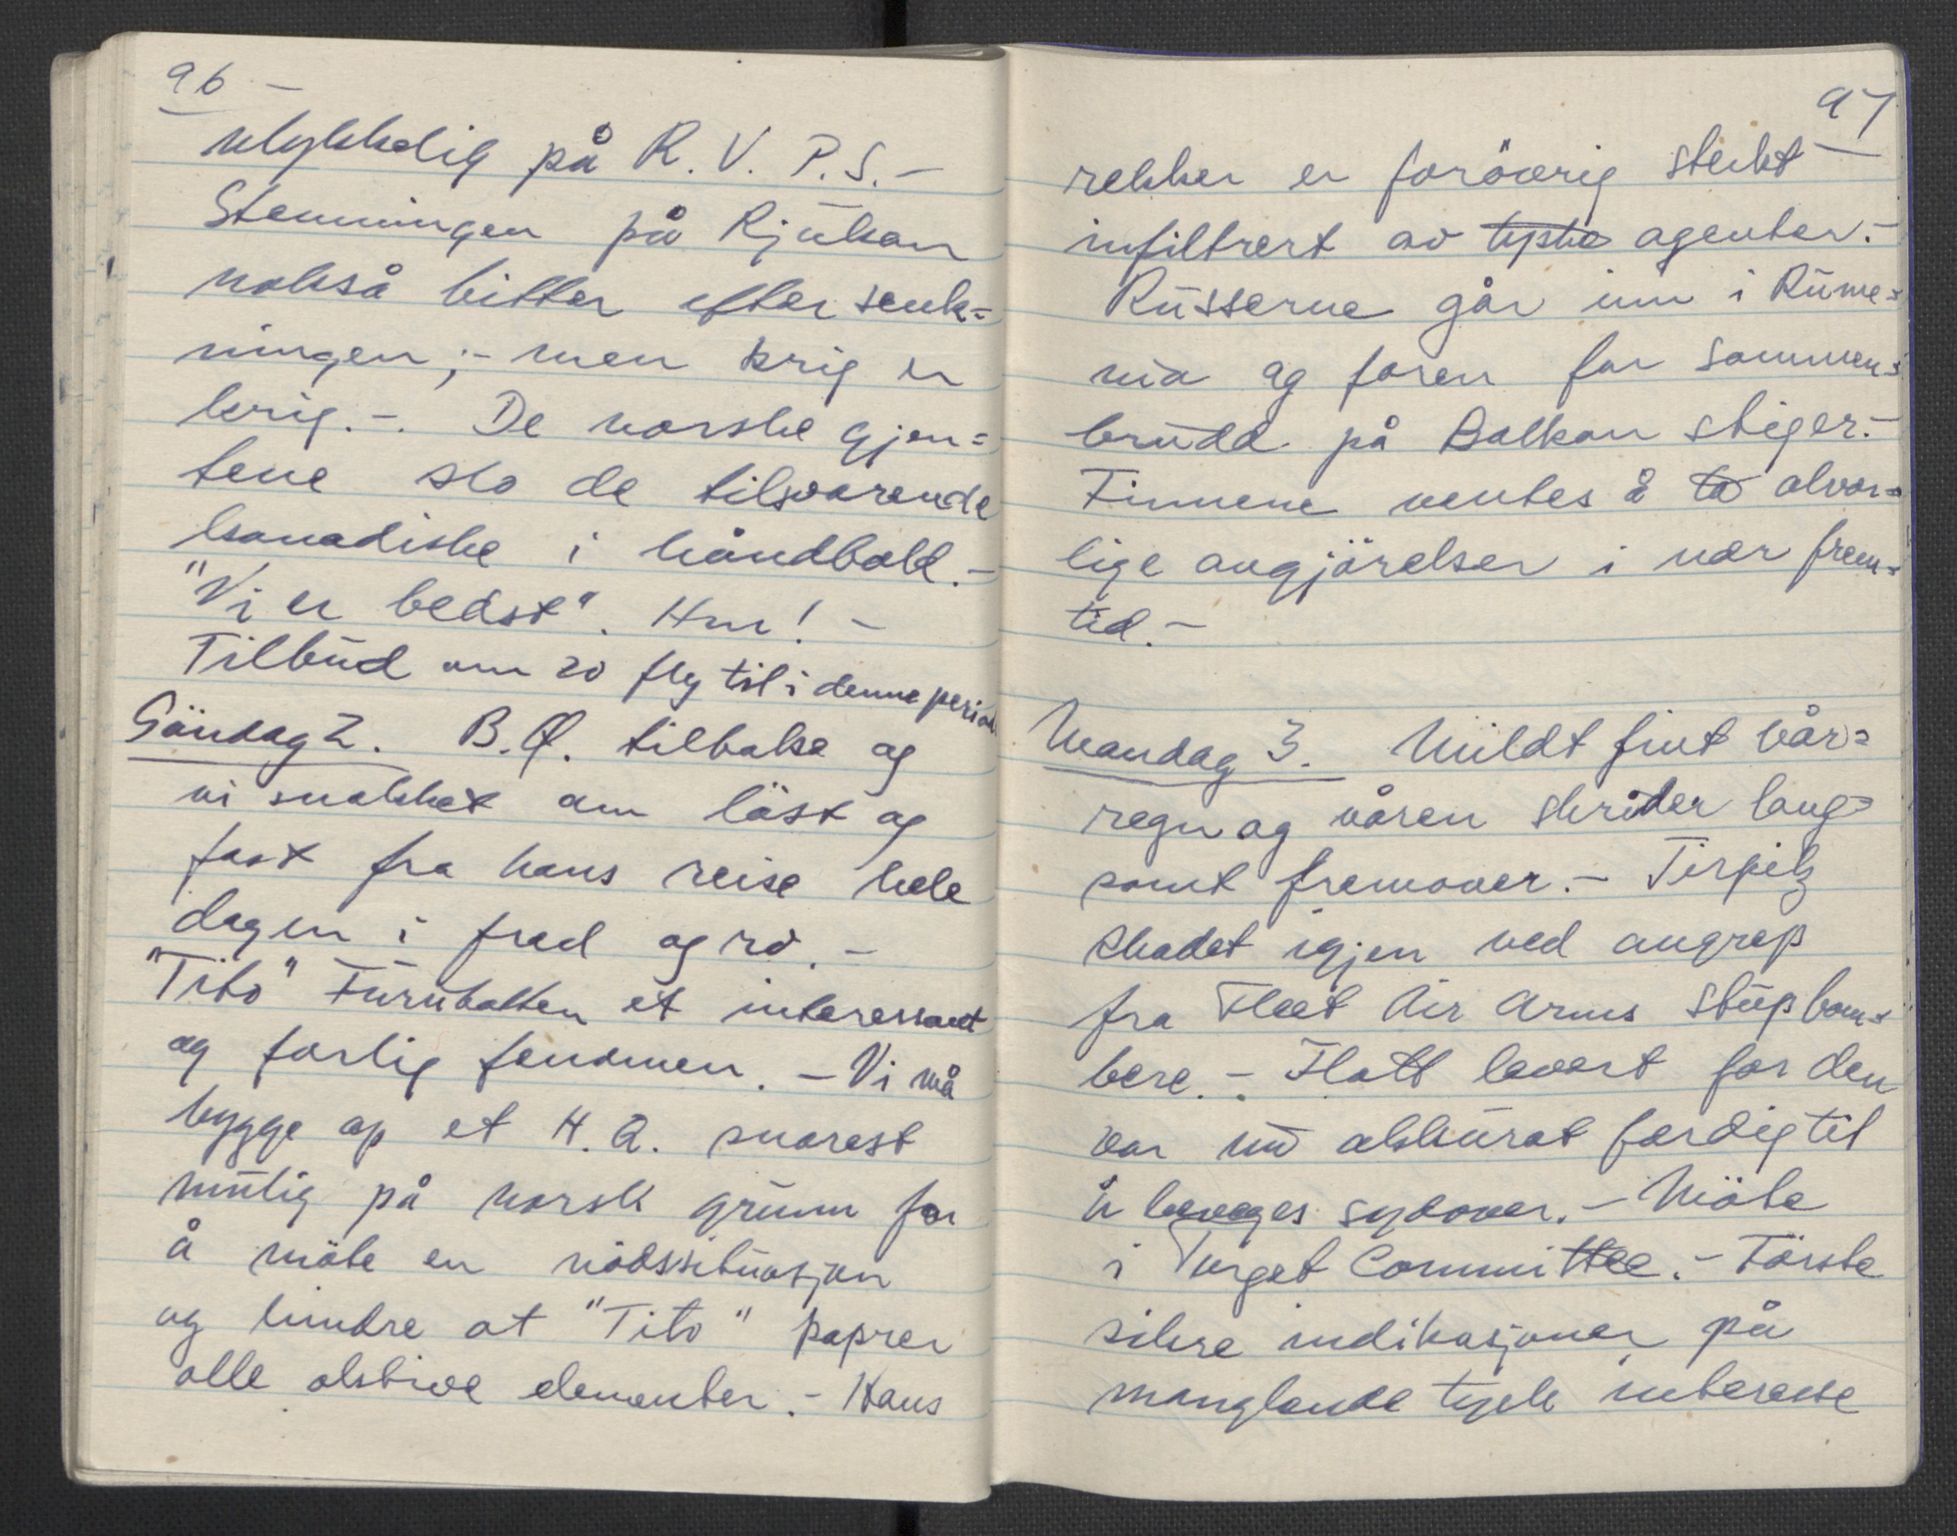 96 -
ulykkelig på R. V. P. S. -
Stemningen på Rjukan
nokså bitter efter senk=
ningen; - men krig er
krig. -. De norske gjen=
tene slo de tilsvarende
kanadiske i håndball. -
"Vi er bedst". Hm! -
Tilbud om 20 fly til i denne periode.
Söndag 2. B.Ø. tilbake og
vi snakket om löst og
fast fra hans reise hele
dagen i fred og ro. -
"Tito" Furubotten et interessant
og farlig fenomen. - Vi må
bygge op et H.Q. snarest
mulig på norsk grunn for
å möte en nödssituasjon
og hindre at "Tito" kaprer
alle aktive elementer. - Hans
97
rekker er foröverig sterkt
infiltrert av tyske agenter. -
Russerne går inn i Rume=
nia og faren for sammen=
brudd på Balkan stiger. -
Finnene ventes å ta alvor=
lige avgjörelser i nær frem=
tid. -
Mandag 3. Mildt fint vår=
regn og våren skrider lang=
somt fremover. - Tirpitz
skadet igjen ved angrep
fra Fleet Air Arms stupbom=
bere. - Flott levert for den
var nu akkurat færdig til
å beveges sydover. - Möte
i Target Committee. - Förste
sikre indikasjoner på
manglende tysk interesse